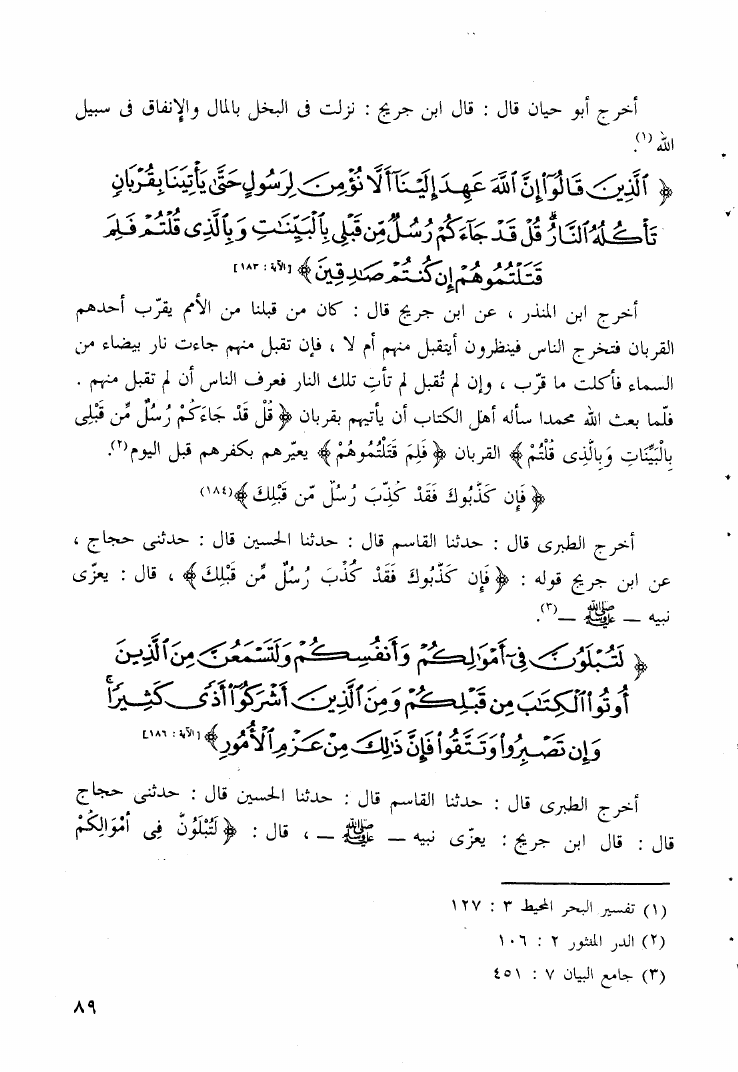 أخرج أبو حيان قال : قال ابن جريج : نزلت فى البخل بالمال والإنفاق فى سبيل
الله (١).
﴿ ٱلَّذِينَ قَالُوٓا۟ إِنَّ ٱللَّهَ عَهِدَ إِلَيْنَآ أَلَّا نُؤْمِنَ لِرَسُولٍ حَتَّىٰ يَأْتِيَنَا بِقُرْبَانٍ
تَأْكُلُهُ ٱلنَّارُ ۗ قُلْ قَدْ جَآءَكُمْ رُسُلٌ مِّن قَبْلِى بِٱلْبَيِّنَٰتِ وَبِٱلَّذِى قُلْتُمْ فَلِمَ
قَتَلْتُمُوهُمْ إِن كُنتُمْ صَٰدِقِينَ ﴾ [الآية : ١٨٣]
أخرج ابن المنذر ، عن ابن جريج قال : كان من قبلنا من الأمم يقرّب أحدهم
القربان فتخرج الناس فينظرون أيتقبل منهم أم لا ، فإن تقبل منهم جاءت نار بيضاء من
السماء فأكلت ما قرّب ، وإن لم تُقبل لم تأتِ تلك النار فعرف الناس أن لم تقبل منهم .
فلّما بعث الله محمدا سأله أهل الكتاب أن يأتيهم بقربان ﴿ قُلْ قَدْ جَاءَكُمْ رُسُلٌ مِّن قَبْلِى
بِالْبَيِّنَاتِ وَبِالَّذِى قُلْتُمْ ﴾ القربان ﴿ فَلِمَ قَتَلْتُمُوهُمْ ﴾ يعيّرهم بكفرهم قبل اليوم(٢).
﴿ فَإِن كَذَّبُوكَ فَقَدْ كُذِّبَ رُسُلٌ مِّن قَبْلِكَ ﴾(١٨٤)
أخرج الطبرى قال : حدثنا القاسم قال : حدثنا الحسين قال : حدثنى حجاج ،
عن ابن جريج قوله : ﴿ فَإِن كَذَّبُوكَ فَقَدْ كُذِّبَ رُسُلٌ مِّن قَبْلِكَ ﴾ ، قال : يعزّى
نبيه ــ ﷺ ــ(٣).
﴿ لَتُبْلَوُنَّ فِىٓ أَمْوَٰلِكُمْ وَأَنفُسِكُمْ وَلَتَسْمَعُنَّ مِنَ ٱلَّذِينَ
أُوتُوا۟ ٱلْكِتَٰبَ مِن قَبْلِكُمْ وَمِنَ ٱلَّذِينَ أَشْرَكُوٓا۟ أَذًى كَثِيرًا ۚ
وَإِن تَصْبِرُوا۟ وَتَتَّقُوا۟ فَإِنَّ ذَٰلِكَ مِنْ عَزْمِ ٱلْأُمُورِ ﴾ [الآية : ١٨٦]
أخرج الطبرى قال : حدثنا القاسم قال : حدثنا الحسين قال : حدثنى حجاج
قال : قال ابن جريج : يعزّى نبيه ــ ﷺ ــ ، قال : ﴿ لَتُبْلَوُنَّ فِى أَمْوَالِكُمْ
(١) تفسير البحر المحيط ٣ : ١٢٧
(٢) الدر المنثور ٢ : ١٠٦
(٣) جامع البيان ٧ : ٤٥١
٨٩